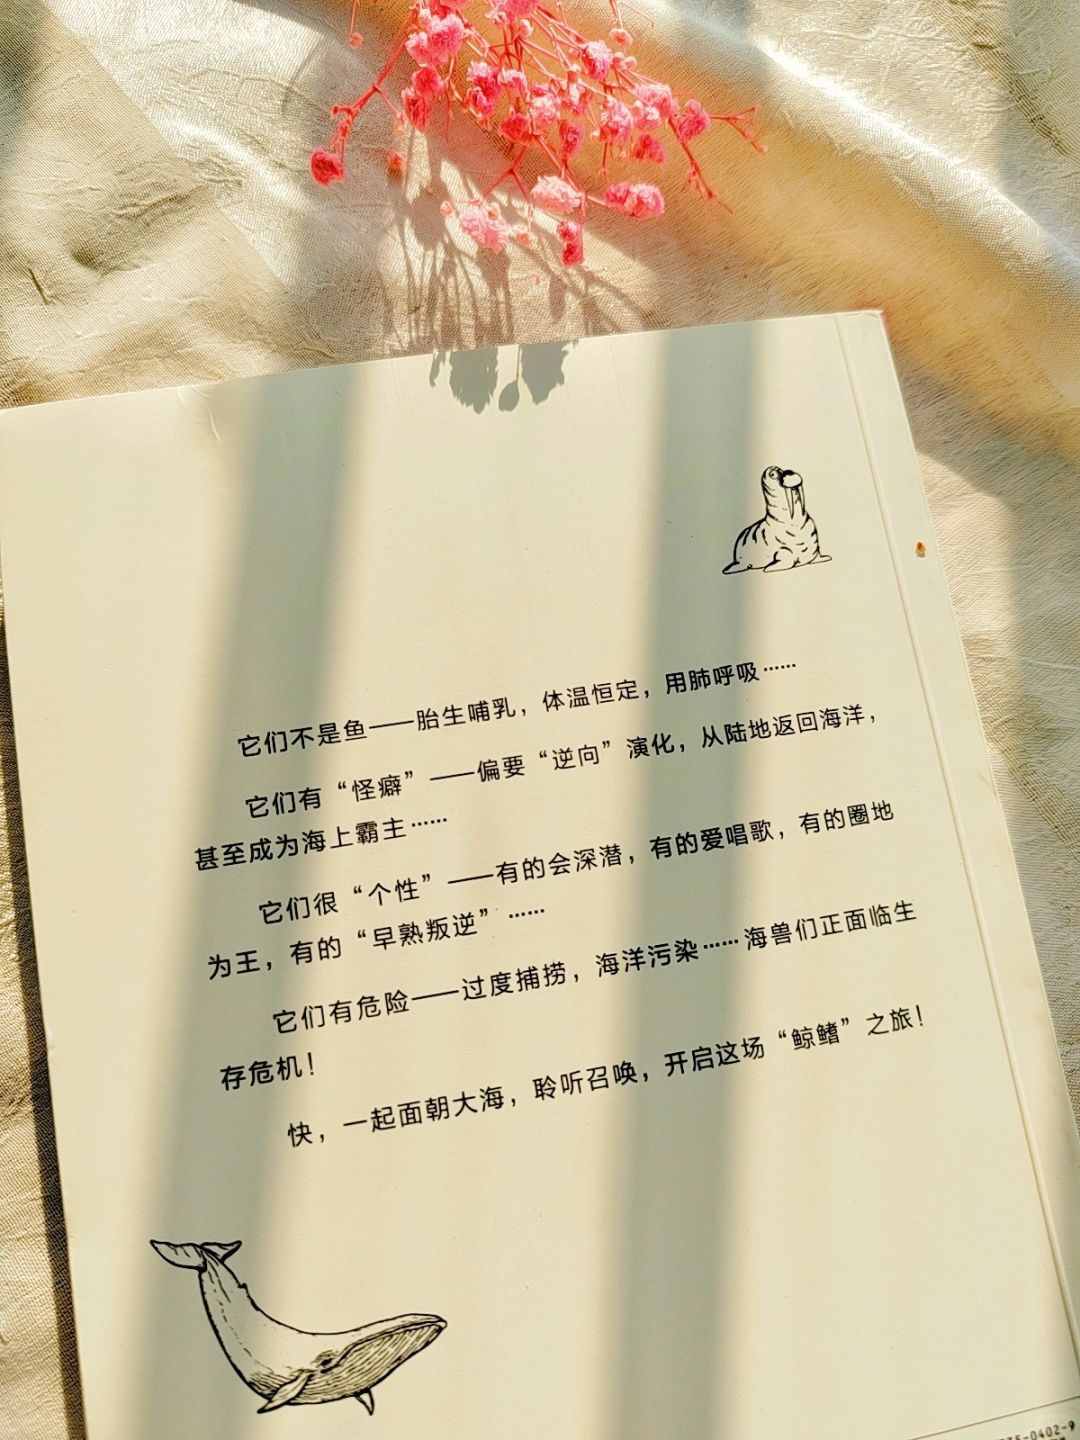 它们不是鱼——胎生哺乳，体温恒定，用肺呼吸……
它们有“怪癖”——偏要“逆向”演化，从陆地返回海洋，
甚至成为海上霸主……
它们很“个性”——有的会深潜，有的爱唱歌，有的圈地
为王，有的“早熟叛逆”……
它们有危险——过度捕捞，海洋污染……海兽们正面临生
存危机！
快，一起面朝大海，聆听召唤，开启这场“鲸鳍”之旅！
-0402-9